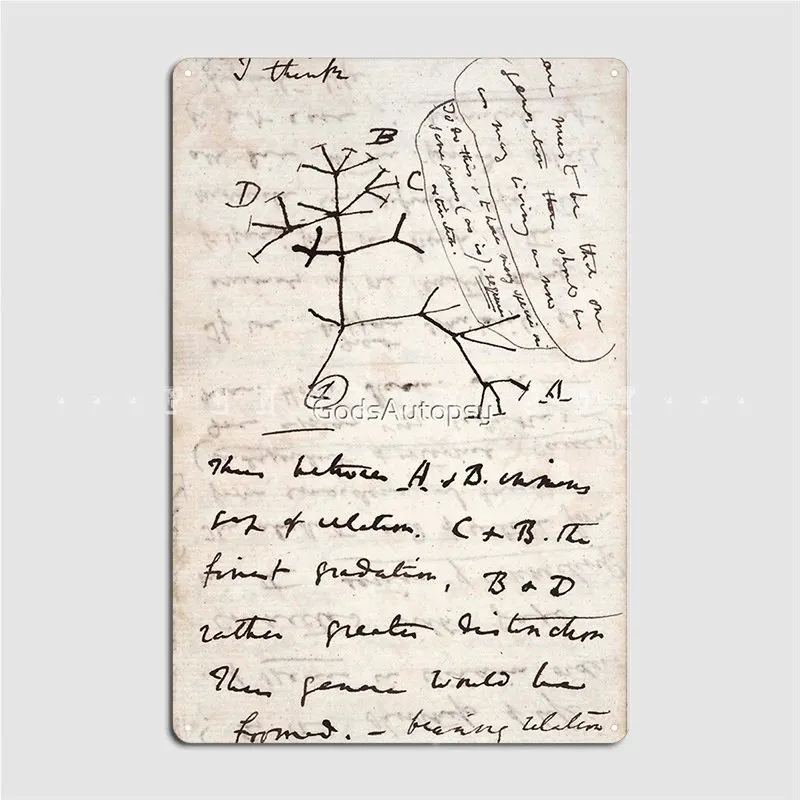 I think
B
C
D
1
A
one must be that one
generation then should be
as many living as now
To do this & to have many species in
same genus (as is). requires
extinction.
GodsAutopsy
Thus between A & B. immens
gap of relation. C & B. the
finest gradation, B & D
rather greater distinction
Thus genera would be
formed. — bearing relation